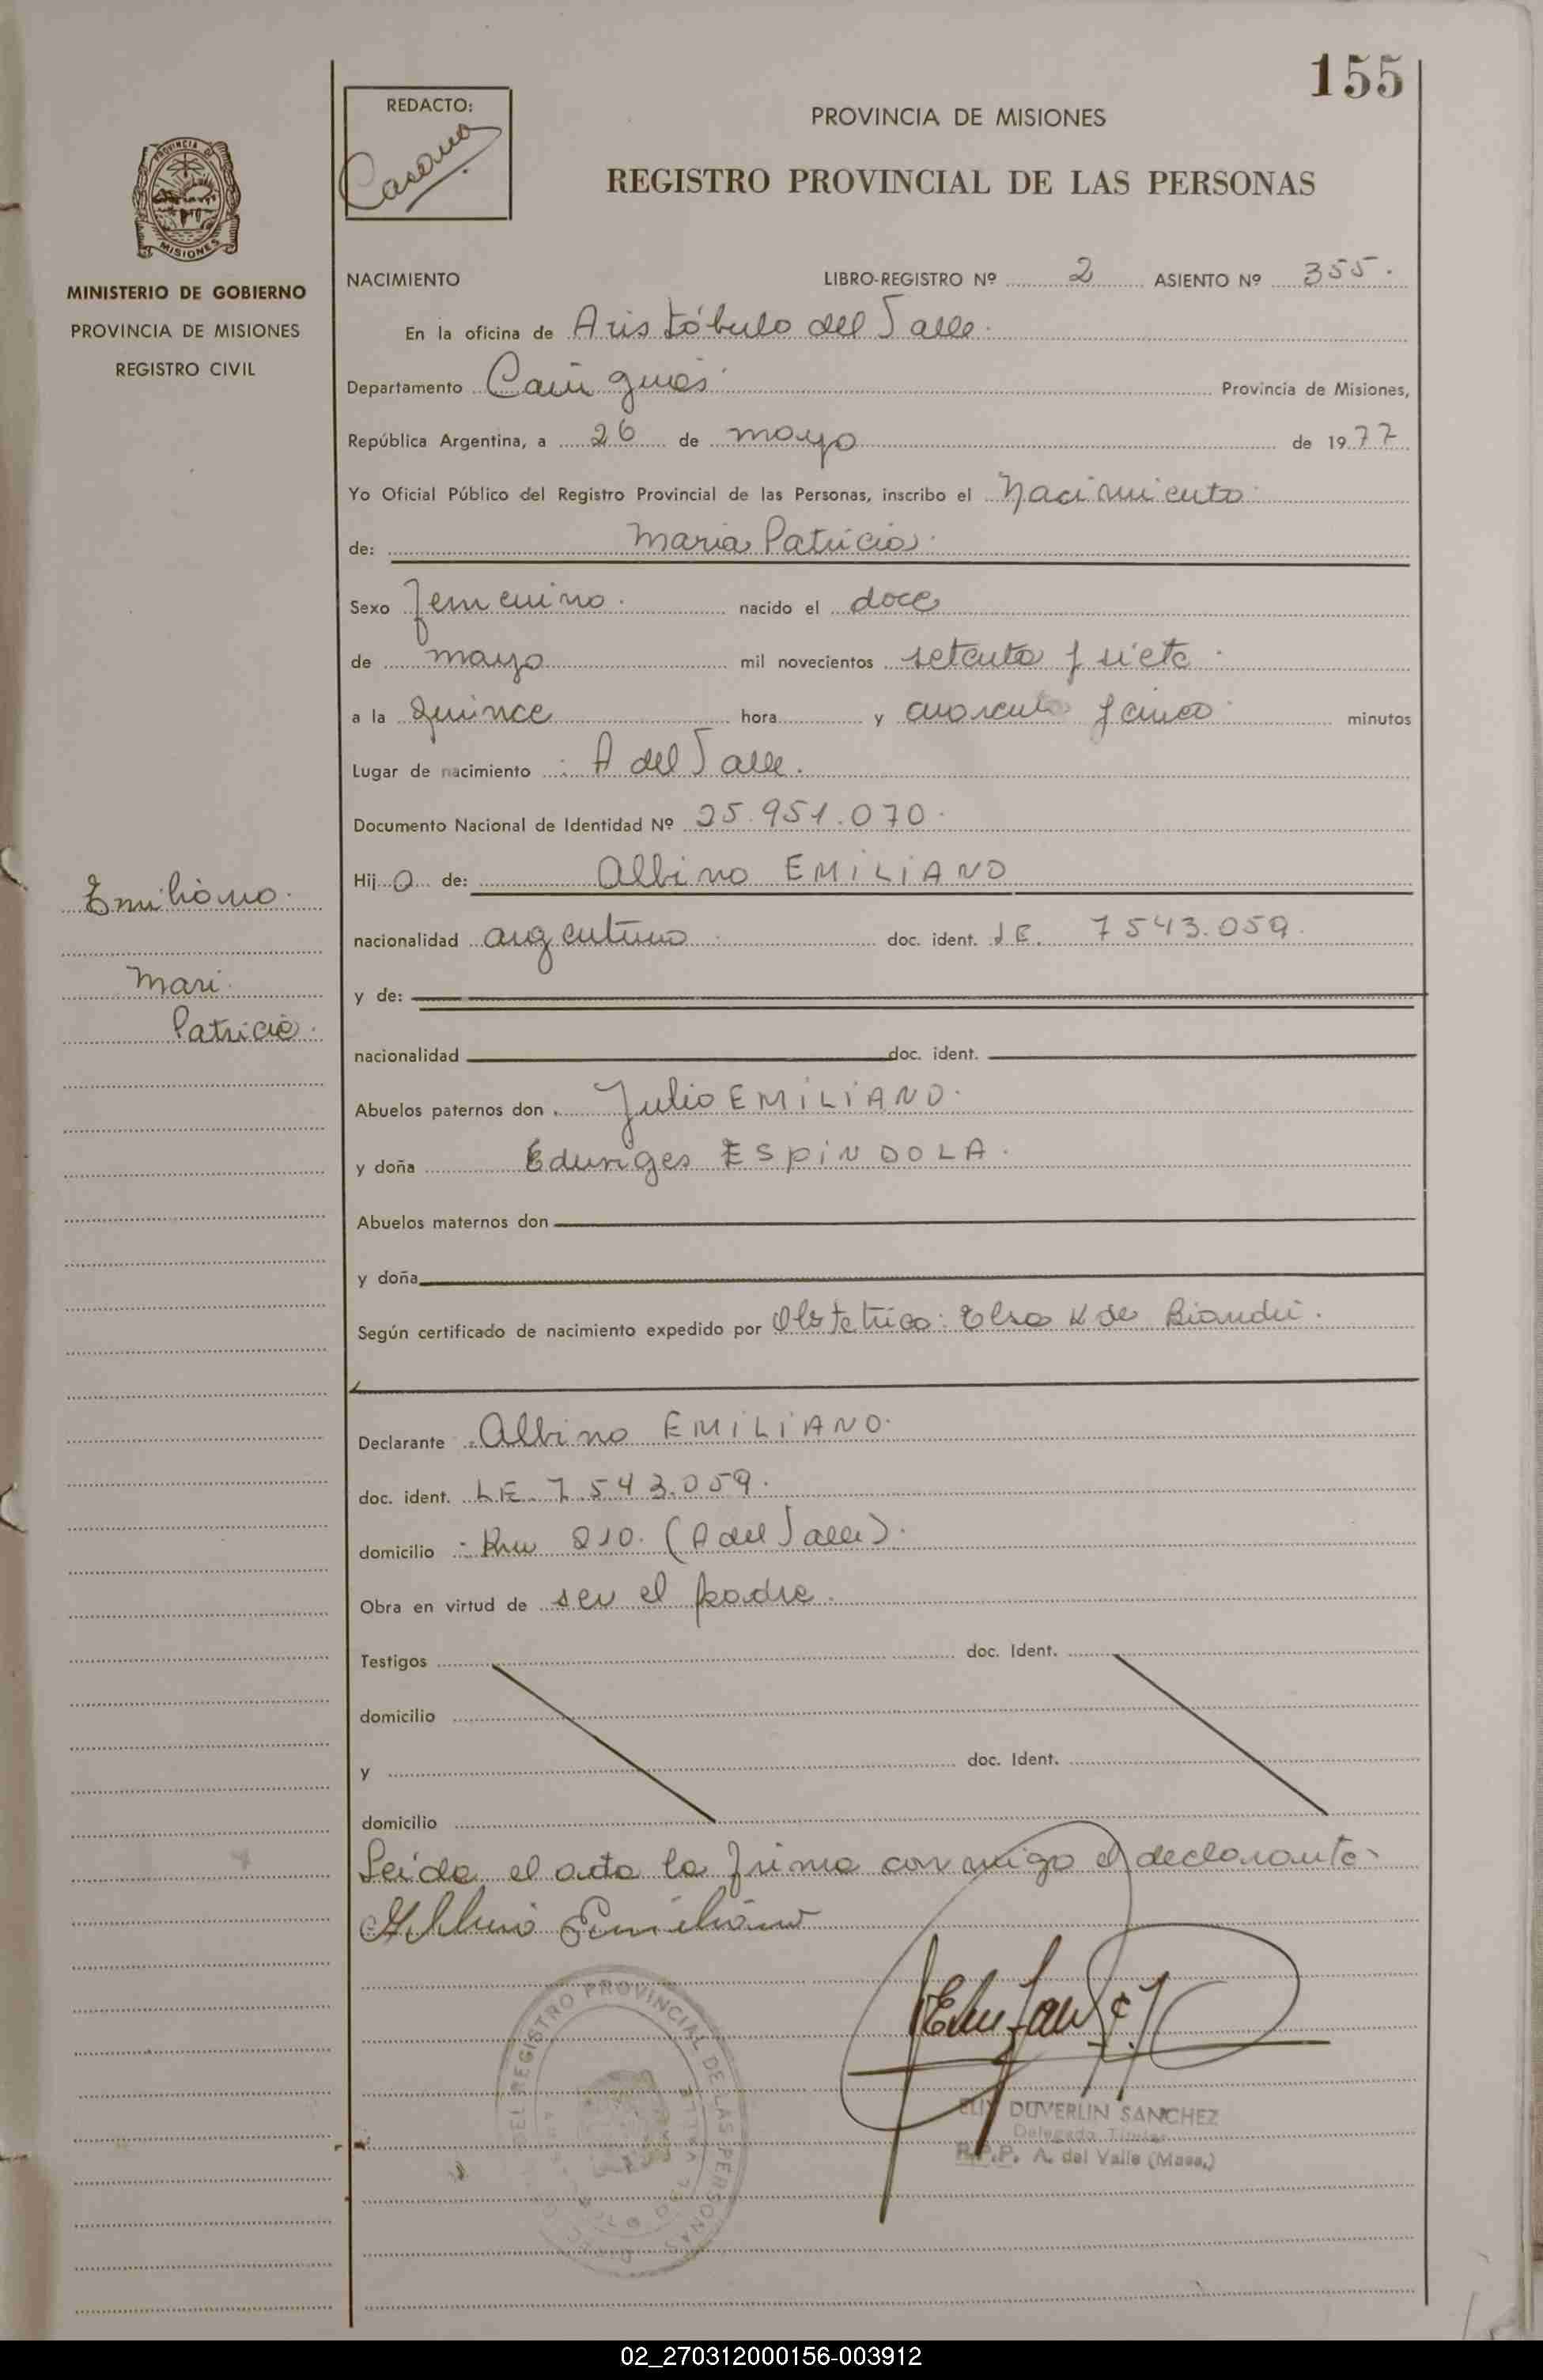 155
REDACTO:
PROVINCIA DE MISIONES
REGISTRO PROVINCIAL DE LAS PERSONAS
PROVINCIA DE
MISIONES
MINISTERIO DE GOBIERNO
PROVINCIA DE MISIONES
REGISTRO CIVIL
NACIMIENTO LIBRO-REGISTRO Nº 2 ASIENTO Nº 355.
En la oficina de Aristóbulo del Valle.
Departamento Cainguás Provincia de Misiones,
República Argentina, a 26 de mayo de 1977
Yo Oficial Público del Registro Provincial de las Personas, inscribo el Nacimiento
de: Maria Patricia.
Sexo femenino. nacido el doce
de mayo mil novecientos setenta y siete.
a la quince hora y cuarenta y cinco minutos
Lugar de nacimiento : A del Valle.
Documento Nacional de Identidad Nº 25.951.070.
Hij a de: Albino EMILIANO
Emiliano.
nacionalidad argentino doc. ident. LE. 7543.059.
Mari.
y de:
Patricia.
nacionalidad doc. ident.
Abuelos paternos don Julio EMILIANO.
y doña Eduviges ESPINDOLA.
Abuelos maternos don
y doña
Según certificado de nacimiento expedido por Obstetrica: Elsa K de
Declarante : Albino EMILIANO.
doc. ident. LE. 7.543.059.
domicilio : Km 210. (A del Valle).
Obra en virtud de ser el padre.
Testigos doc. Ident.
domicilio
y doc. Ident.
domicilio
Leida el acta la firma conmigo el declarante.
Albino Emiliano
DEL REGISTRO PROVINCIAL DE LAS PERSONAS
DUVERLIN SANCHEZ
Delegado Titular
R.P.P. A. del Valle (Mnes.)
02_270312000156-003912